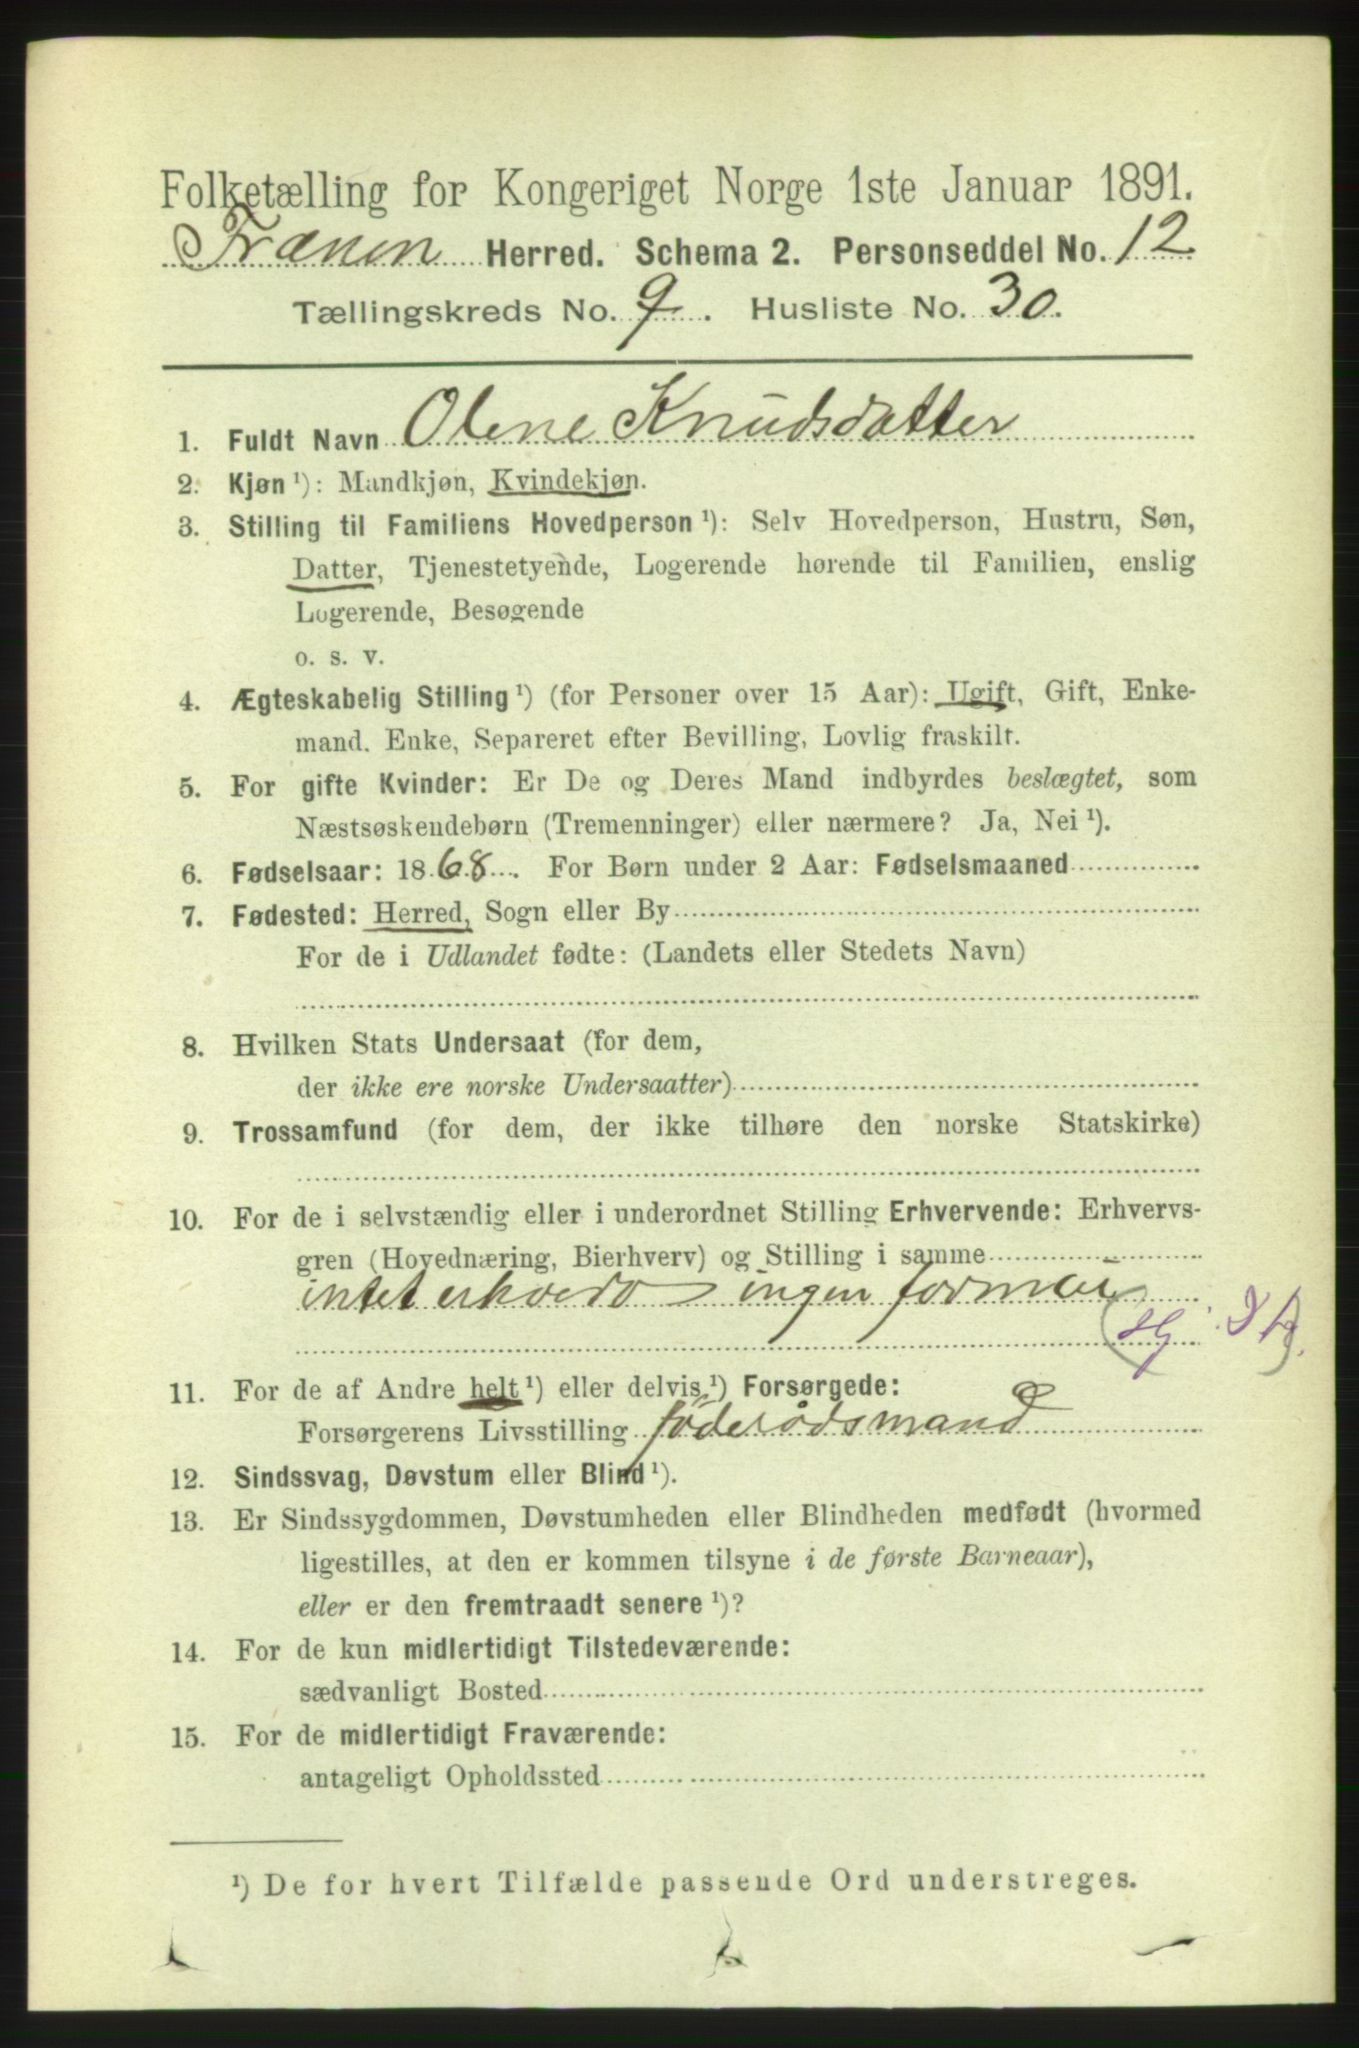 Folketælling for Kongeriget Norge 1ste Januar 1891.
Frænen Herred. Schema 2. Personseddel No. 12
Tællingskreds No. 9. Husliste No. 30.
1. Fuldt Navn Olene Knudsdatter
2. Kjøn ¹): Mandkjøn, Kvindekjøn.
3. Stilling til Familiens Hovedperson ¹): Selv Hovedperson, Hustru, Søn,
Datter, Tjenestetyende, Logerende hørende til Familien, enslig
Logerende, Besøgende
o. s. v.
4. Ægteskabelig Stilling ¹) (for Personer over 15 Aar): Ugift, Gift, Enke-
mand. Enke, Separeret efter Bevilling, Lovlig fraskilt.
5. For gifte Kvinder: Er De og Deres Mand indbyrdes beslægtet, som
Næstsøskendebørn (Tremenninger) eller nærmere? Ja, Nei ¹).
6. Fødselsaar: 1868. For Børn under 2 Aar: Fødselsmaaned
7. Fødested: Herred, Sogn eller By
For de i Udlandet fødte: (Landets eller Stedets Navn)
8. Hvilken Stats Undersaat (for dem,
der ikke ere norske Undersaatter)
9. Trossamfund (for dem, der ikke tilhøre den norske Statskirke)
10. For de i selvstændig eller i underordnet Stilling Erhvervende: Erhvervs-
gren (Hovednæring, Bierhverv) og Stilling i samme
intet erhverv ingen formue
11. For de af Andre helt ¹) eller delvis ¹) Forsørgede:
Forsørgerens Livsstilling föderådsmand
12. Sindssvag, Døvstum eller Blind ¹).
13. Er Sindssygdommen, Døvstumheden eller Blindheden medfødt (hvormed
ligestilles, at den er kommen tilsyne i de første Barneaar),
eller er den fremtraadt senere ¹)?
14. For de kun midlertidigt Tilstedeværende:
sædvanligt Bosted
15. For de midlertidigt Fraværende:
antageligt Opholdssted
¹) De for hvert Tilfælde passende Ord understreges.